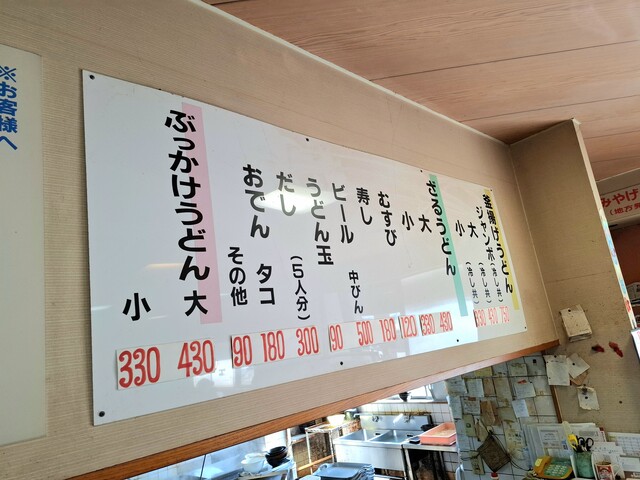 釜揚げうどん
ジャンボ(冷し共)
大(冷し共)430
小(冷し共)330
ざるうどん
大 430
小 330
むすび 120
寿し 180
ビール 中びん 500
うどん玉 90
だし(5人分)300
おでん タコ 180
その他 90
ぶっかけうどん 大 430
小 330
※お客様へ
みやげ